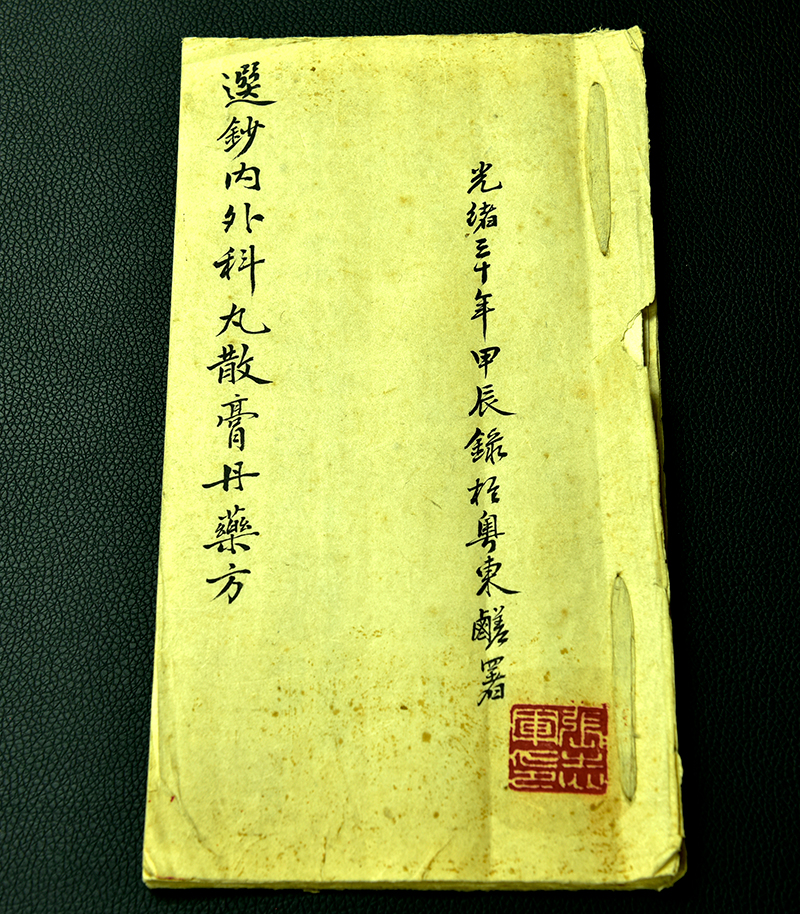 光緒三十年甲辰錄於粵東鹺署
選鈔內外科丸散膏丹藥方
張志軍印